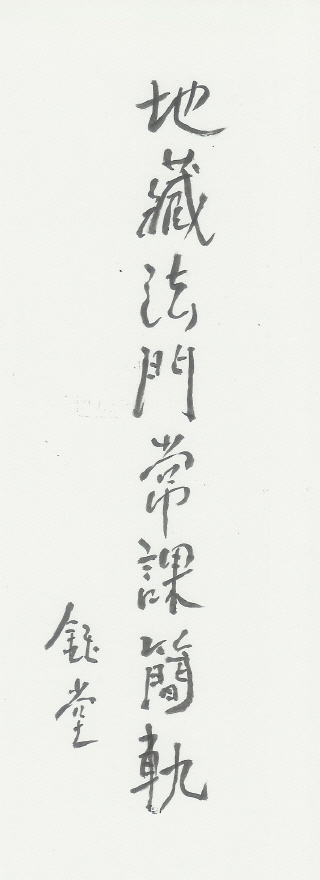 地藏法門常課簡軌